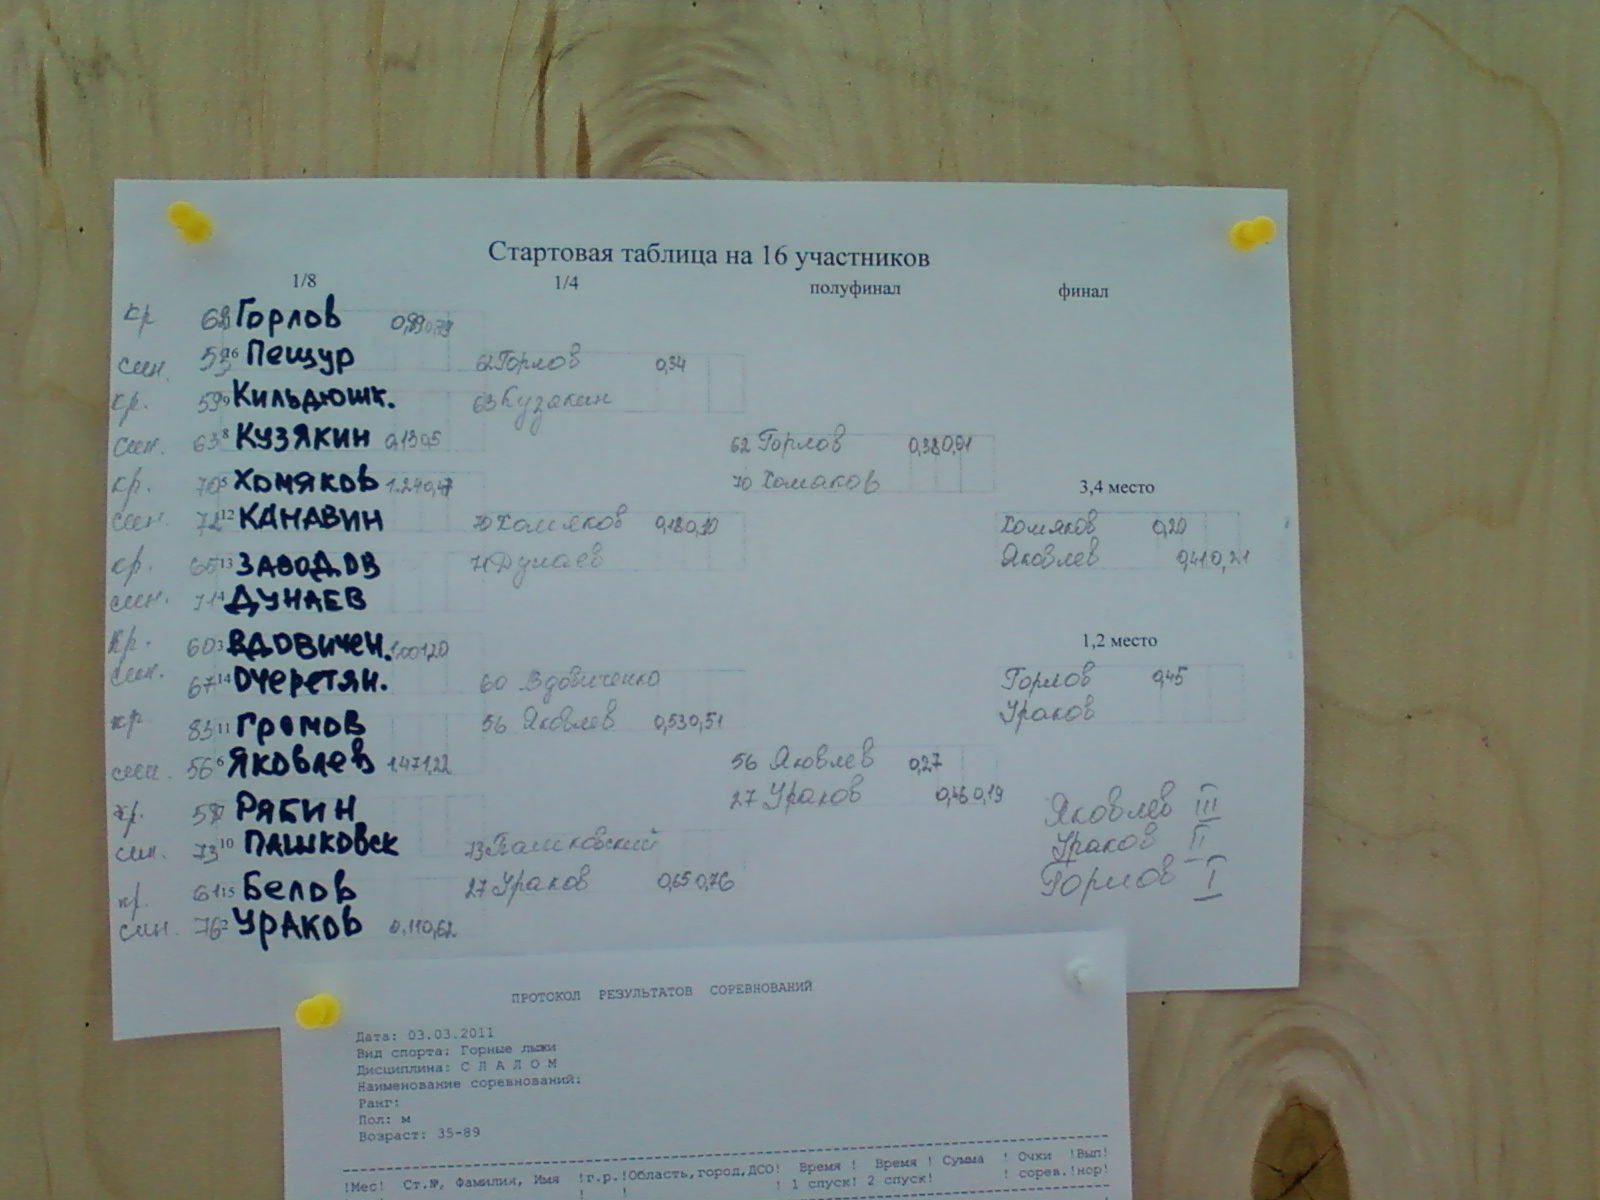 Стартовая таблица на 16 участников
1/8 1/4 полуфинал финал
кр 62 Горлов
син. 16 Пещур 62 Горлов 0,34
кр. 59 9 Кильдюшк. 63 Кузякин
син. 63 8 Кузякин 62 Горлов
кр. 70 5 Хомяков 70 Хомяков 3,4 место
син. 12 КАНАВИН 70 Хомяков Хомяков 0,20
кр. 13 ЗАВОДОВ 71 Дунаев Яковлев 0,41 0,21
син. 71 4 ДУНАЕВ
кр. 60 3 ВДОВИЧЕН. 1,00 1,20 1,2 место
син. 67 14 Очеретян. 60 Вдовиченко Горлов 0,45
кр 11 Громов 56 Яковлев 0,53 0,51 Ураков
син. 56 6 Яковлев 1,47 1,22 56 Яковлев 0,27
кр. РЯБИН 27 Ураков 0,46 0,19 Яковлев III
син. 73 10 ПАШКОВСК 73 Пашковский Ураков II
кр. 61 15 Белов 27 Ураков 0,65 0,76 Горлов I
син. 76 2 УРАКОВ 0,11 0,62
ПРОТОКОЛ РЕЗУЛЬТАТОВ СОРЕВНОВАНИЙ
Дата: 03.03.2011
Вид спорта: Горные лыжи
Дисциплина: С Л А Л О М
Наименование соревнований:
Ранг:
Пол: м
Возраст: 35-89
!Мес! Ст.№, Фамилия, Имя !г.р.!Область,город,ДСО! Время ! Время ! Сумма ! Очки !Вып!
! ! ! 1 спуск! 2 спуск! ! сорев.!нор!